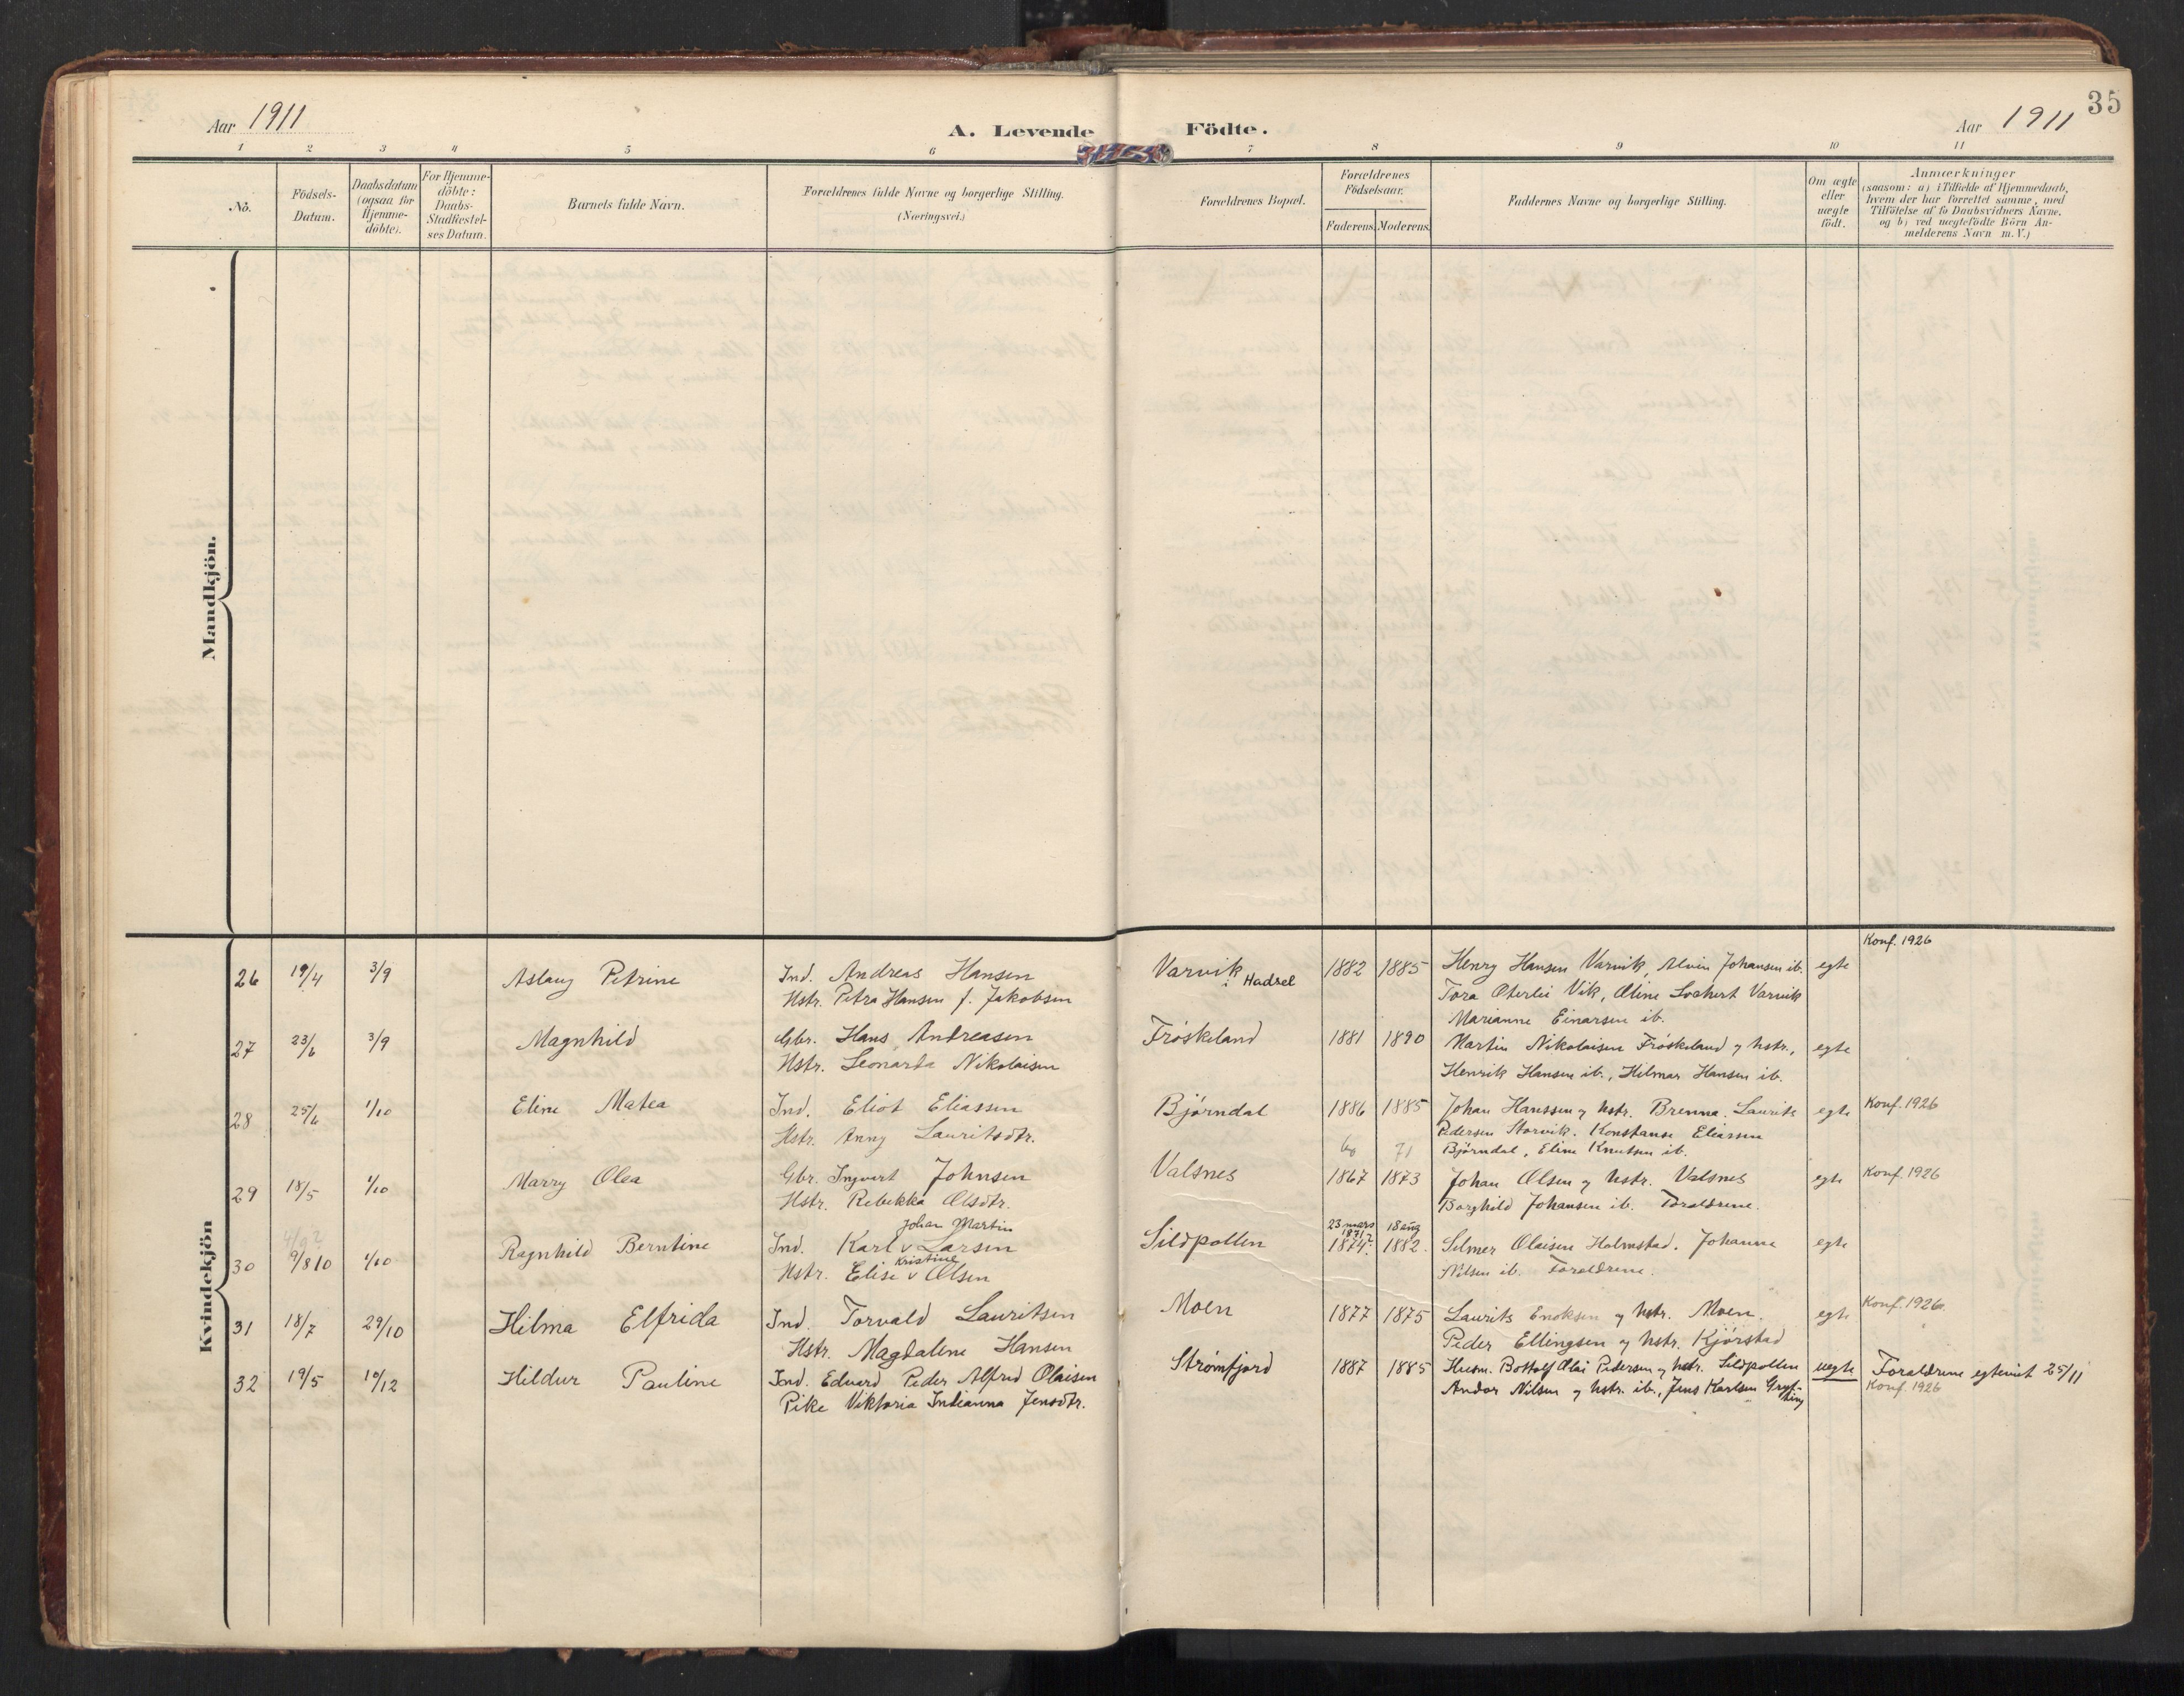 35
Aar 1911
A. Levende Födte.
Aar 1911
1 2 3 4 5 6 7 8 9 10 11
No.
Födsels-
Datum.
Daabsdatum
(ogsaa for
Hjemme-
döbte).
For Hjemme-
döbte:
Daabs-
Stadfæstel-
ses Datum.
Barnets fulde Navn.
Forældrenes fulde Navne og borgerlige Stilling.
(Næringsvei.)
Forældrenes Bopæl.
Forældrenes
Födselsaar.
Faderens. Moderens.
Faddernes Navne og borgerlige Stilling.
Om ægte
eller
uægte
födt.
Anmærkninger
(saasom: a) i Tilfælde af Hjemmedaab,
hvem der har forrettet samme, med
Tilföielse af to Daabsvidners Navne,
og b) ved uægtefödte Börn An-
melderens Navn m. V.)
Mandkjön.
Kvindekjön
Konf. 1926
26 19/4 3/9 Aslaug Petrine Ind. Andreas Hansen Varvik, Hadsel 1882 1885 Henry Hansen Varvik, Alvin Johansen ib. egte
Hstr. Petra Hansen f. Jakobsen Tora Oterlei Vik, Oline Lockert Varvik
Marianne Einarsen ib.
27 23/6 3/9 Magnhild Gbr. Hans Andreasen Frøskeland 1881 1890 Martin Nikolaisen Frøskeland og hstr., egte
Hstr. Leonarda Nikolaisen Henrik Hansen ib., Hilmar Hansen ib.
28 25/6 1/10 Eline Matea Ind. Eliot Eliassen Bjørndal 1886 1885 Johan Hanssen og hstr. Brenna. Laurits egte Konf. 1926
Hstr. Anny Lauritsdtr. Pedersen Storvik. Konstanse Eliassen
Bjørndal, Eline Knutsen ib.
71
29 18/5 1/10 Marry Olea Gbr. Ingvart Johnsen Valsnes 1867 1873 Johan Olsen og hstr. Valsnes egte Konf. 1926
Hstr. Rebekka Olsdtr. Borghild Johansen ib. Forældrene.
Johan Martin 23 mars 1871? 18 aug
30 9/8 10 1/10 Ragnhild Berntine Ind. Karl v Larsen Sildpollen 1874. 1882. Selmer Olaisen Holmstad. Johanna egte
Kristine
Hstr. Elise v Olsen Nilsen ib. Forældrene.
31 18/7 29/10 Hilma Elfrida Ind. Torvald Lauritsen Moen 1877 1875 Laurits Enoksen og hstr. Moen. egte Konf. 1926
Hstr. Magdalene Hansen Peder Ellingsen og hstr. Kjørstad
32 19/5 10/12 Hildur Pauline Ind. Edvard Peder Alfred Olaisen Strømfjord 1887 1885 Husm. Bottolf Olai Pedersen og hstr. Sildpollen uegte Forældrene egteviet 25/11
Pike Viktoria Indianna Jensdtr. Andor Nilsen og hstr. ib., Jens Karlsen Konf. 1926